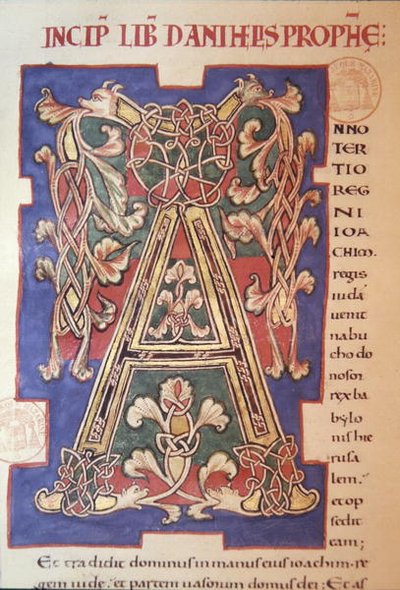 INCIP LIB DANIHELIS PROPHE:
A
NNO
TER
TIO
REG
NI
IOA
CHIM.
regis
iuda
uenit
nabu
chodo
nosor
rex ba
bylo
nis hie
rusa
lem.
et op
sedit
eam;
Et tradidit dominus in manu eius ioachim re
gem iude. et partem uasorum domus dei; Et as